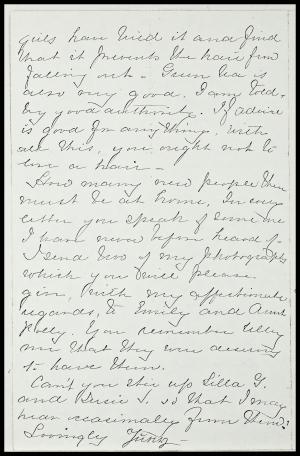 girls have tried it and find
that it prevents the hair from
falling out. Green tea is
also very good, I am told,
by good authority. If advice
is good for any thing, with
all this, you ought not to
lose a hair —
How many new people there
must be at home. In every
letter you speak of some one
I have never before heard of.
I send two of my photographs
which you will please
give, with my affectionate
regards, to Emily and Aunt
Kelly. You remember telling
me that they were desirous
to have them.
Can't you stir up Lilla G.
and Susie S. so that I may
hear occasionally from them?
Lovingly